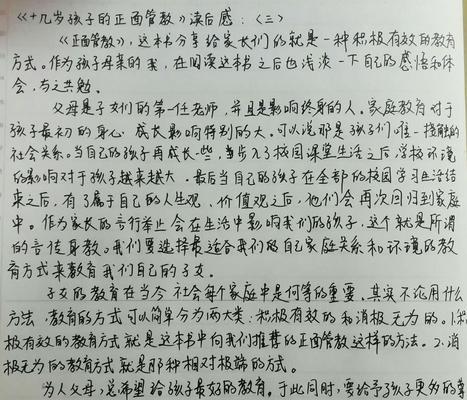 《十几岁孩子的正面管教》读后感:(三)
《正面管教》,这本书分享给家长们的就是一种积极有效的教育
方式。作为孩子母亲的我,在阅读这本书之后也浅谈一下自己的感悟和体
会,与之共勉。
父母是子女们的第一任老师,并且是影响终身的人。家庭教育对于
孩子最初的身心成长影响特别的大。可以说那是孩子们唯一接触的
社会关系。当自己的孩子再成长一些,当步入了校园课堂生活之后,学校环境
的影响对于孩子越来越大。最后当自己的孩子在全部的校园学习生活结
束之后,有了属于自己的人生观,价值观之后,他们会再次回归到家庭
中。作为家长的言行举止会在生活中影响我们的孩子,这个就是所谓
的言传身教。我们要选择最适合我们的自己家庭关系和环境的教
育方式来教育我们自己的子女。
子女的教育在当今社会每个家庭中是何等的重要,其实不论用什么
方法,教育的方式可以简单分为两大类:积极有效的和消极无为的。1.积
极有效的教育方式就是这本书中向我们推荐的正面管教这样的方法。2.消
极无为的教育方式就是那种相对极端的方式。
为人父母,总希望给孩子最好的教育。于此同时,要给予孩子更多的尊